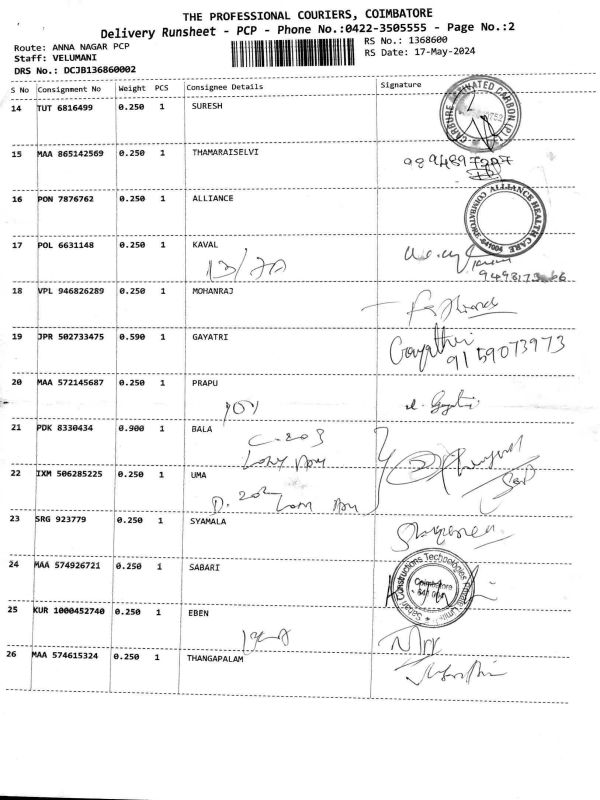 THE PROFESSIONAL COURIERS, COIMBATORE
Delivery Runsheet - PCP - Phone No.:0422-3505555 - Page No.:2
Route: ANNA NAGAR PCP
RS No.: 1368600
Staff: VELUMANI
RS Date: 17-May-2024
DRS No.: DCJB136860002
S No Consignment No Weight PCS Consignee Details Signature
14 TUT 6816499 0.250 1 SURESH
15 MAA 865142569 0.250 1 THAMARAISELVI
16 PON 7876762 0.250 1 ALLIANCE
ALLIANCE HEALTH CARE
COIMBATORE 641004
17 POL 6631148 0.250 1 KAVAL
13/7A
18 VPL 946826289 0.250 1 MOHANRAJ
19 JPR 502733475 0.590 1 GAYATRI
Gayathri
9159073973
20 MAA 572145687 0.250 1 PRAPU
21 PDK 8330434 0.900 1 BALA
C-203
22 IXM 506285225 0.250 1 UMA
D. 202
23 SRG 923779 0.250 1 SYAMALA
24 MAA 574926721 0.250 1 SABARI
Coimbatore
25 KUR 1000452740 0.250 1 EBEN
26 MAA 574615324 0.250 1 THANGAPALAM